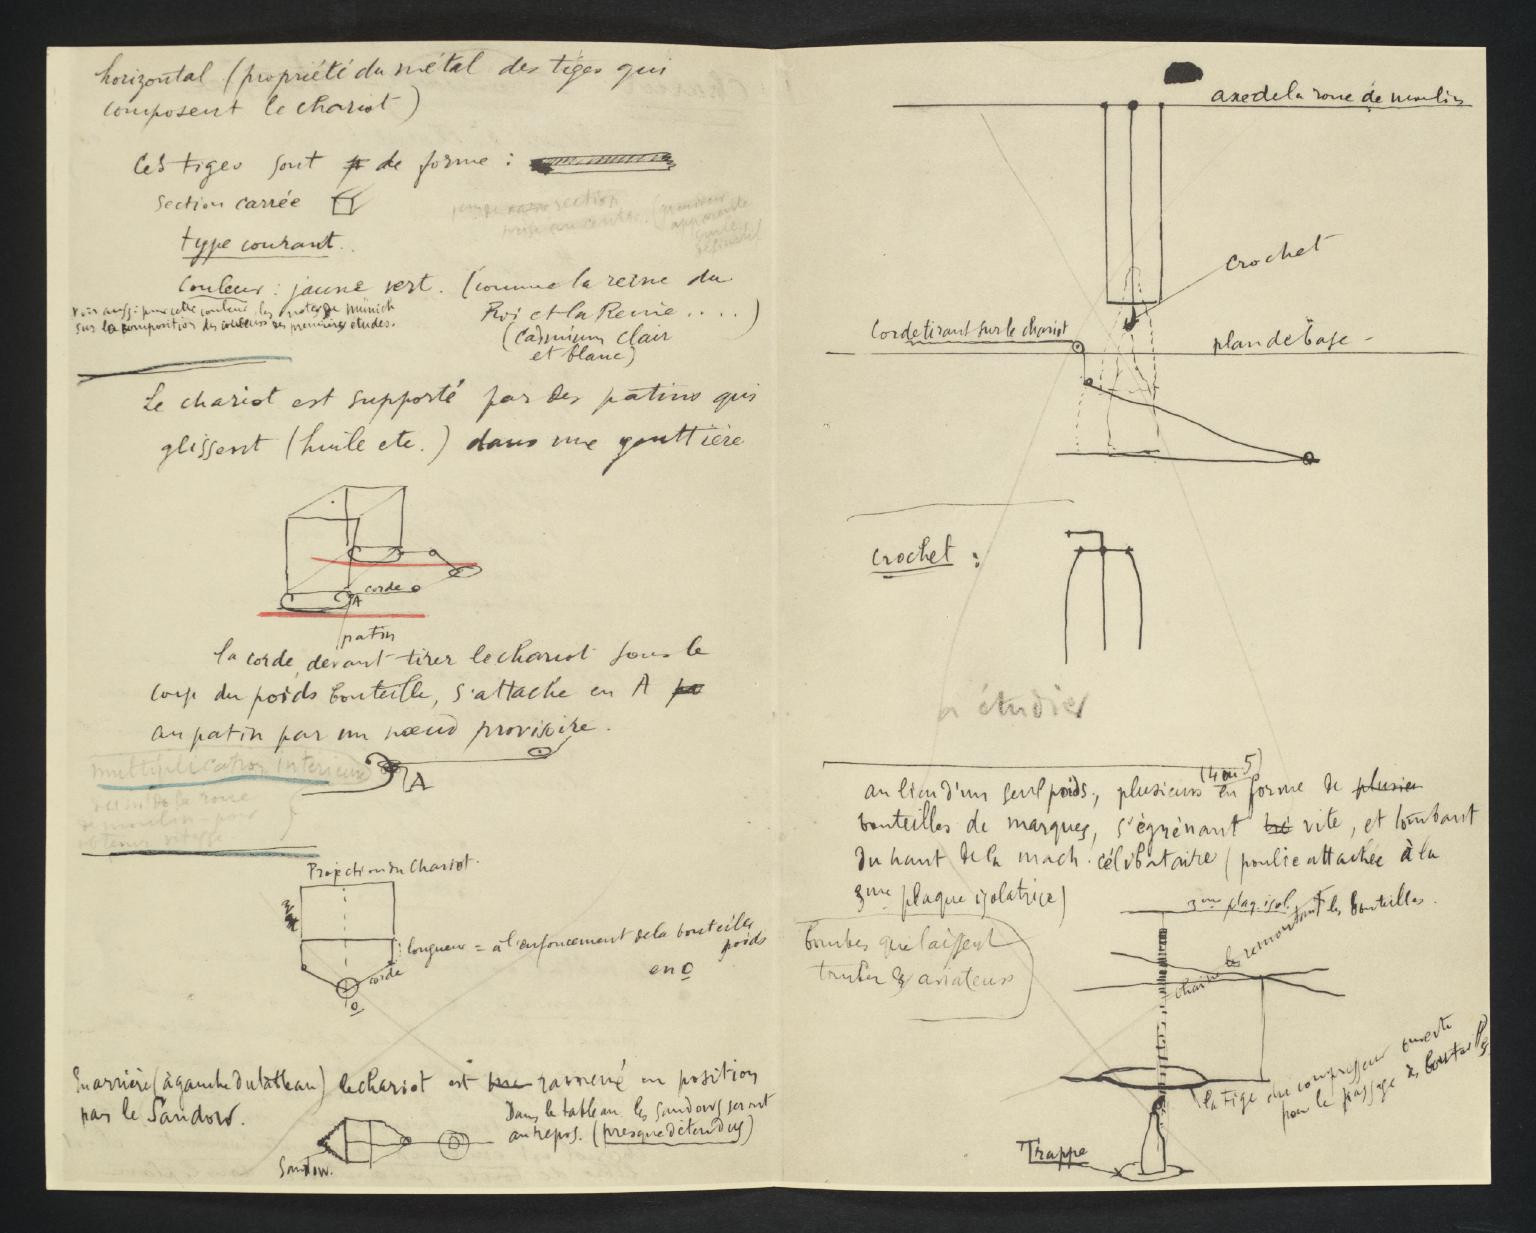 horizontal (propriété du métal des tiges qui
composent le chariot)
Ces tiges sont de forme :
Section carrée
type courant.
Couleur : jaune vert. (comme la reine du
Roi et la Reine....)
(cadmium clair
et blanc)
Voir aussi pour cette couleur les notes de Münich
sur la composition des couleurs des premières études.
Le chariot est supporté par des patins qui
glissent (huile etc.) dans une gouttière
corde
A
patin
la corde, devant tirer le chariot sous le
coup du poids bouteille, s'attache en A
au patin par un nœud provisoire.
multiplication intérieure
de la roue
de moulin pour
obtenir vitesse
A
Projection du Chariot.
longueur = à l'enfoncement de la bouteille
poids
en o
corde
o
En arrière (à gauche du tableau) le chariot est ramené en position
par le Sandow.
Dans le tableau les Sandows seront
au repos. (presque détendus)
Sandow.
axe de la roue de moulin
crochet
Corde tirant sur le chariot
plan de base -
crochet :
à étudier
(4 ou 5)
au lieu d'un seul poids, plusieurs en forme de plusieu
bouteilles de marques, s'égrénant vite, et tombant
du haut de la mach. célibataire (poulie attachée à la
3me plaque isolatrice)
3me plaq. isol.
chaine les remontant les bouteilles.
bombes que laissent
tomber les aviateurs
la tige du compresseur ouverte
pour le passage des bouteilles
Trappe